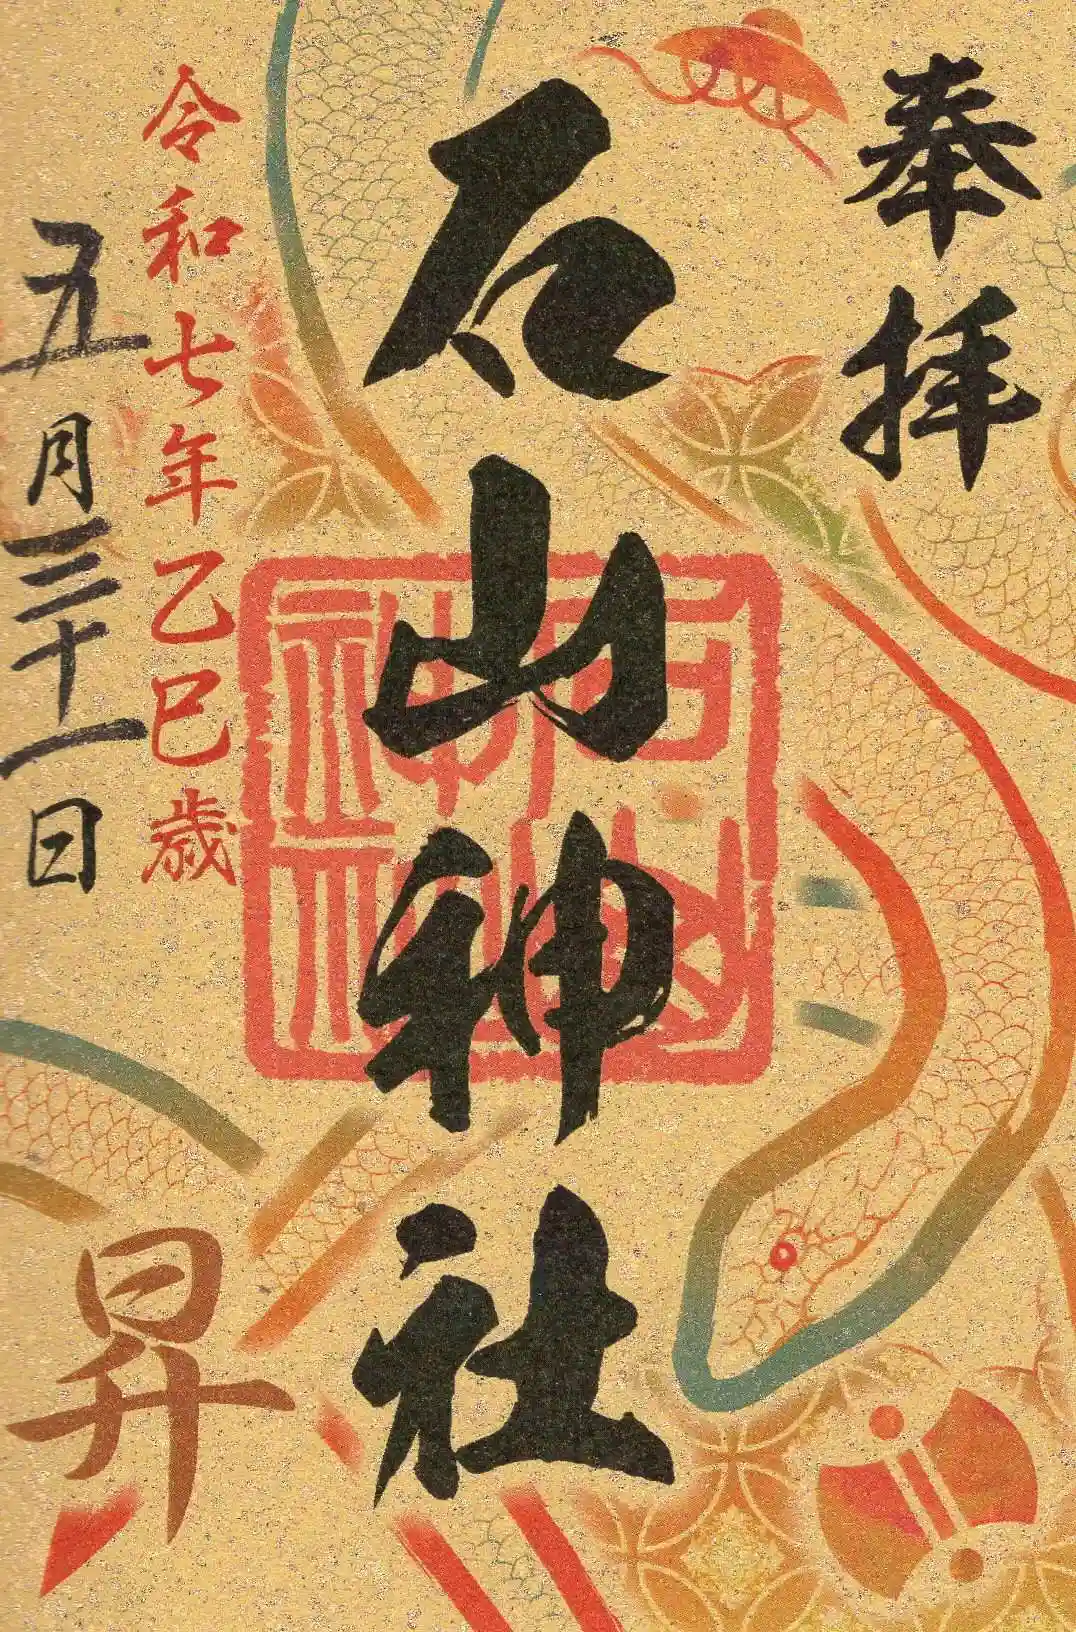 奉拝
石山神社
石山神社
令和七年乙巳歳
五月三十一日
昇